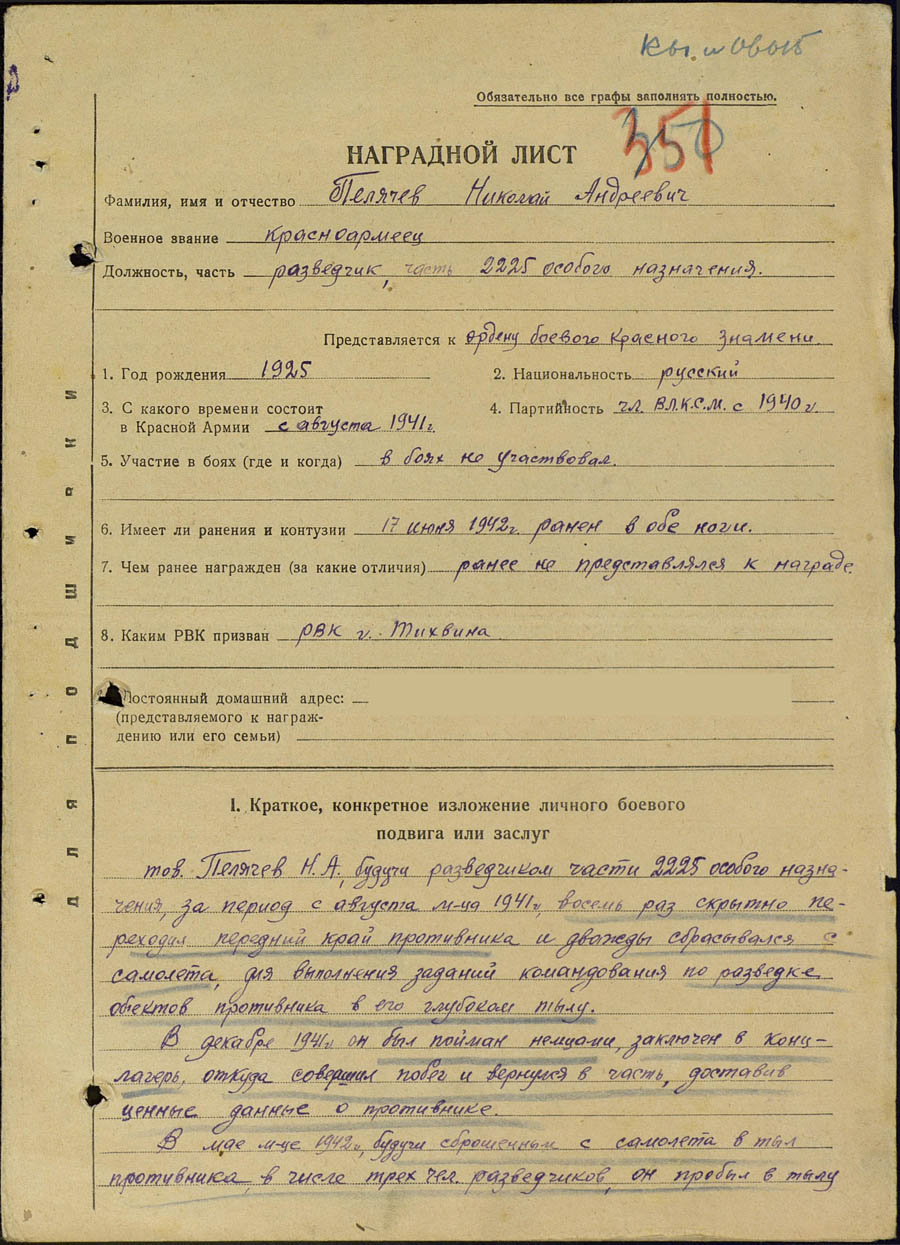 Обязательно все графы заполнять полностью.
НАГРАДНОЙ ЛИСТ
Фамилия, имя и отчество Пелячев Николай Андреевич
Военное звание красноармеец
Должность, часть разведчик, часть 2225 особого назначения.
Представляется к ордену боевого Красного Знамени
1. Год рождения 1925 2. Национальность русский
3. С какого времени состоит 4. Партийность чл. В.Л.К.С.М. с 1940 г.
в Красной Армии с августа 1941 г.
5. Участие в боях (где и когда) в боях не участвовал.
6. Имеет ли ранения и контузии 17 июня 1942 г. ранен в обе ноги.
7. Чем ранее награжден (за какие отличия) ранее не представлялся к награде
8. Каким РВК призван РВК г. Тихвина
Постоянный домашний адрес:
(представляемого к награж-
дению или его семьи)
Для подшивки
I. Краткое, конкретное изложение личного боевого
подвига или заслуг
тов. Пелячев Н.А., будучи разведчиком части 2225 особого назна-
чения, за период с августа м-ца 1941 г, восемь раз скрытно пе-
реходил передний край противника и дважды сбрасывался с
самолета, для выполнения заданий командования по разведке
объектов противника в его глубоком тылу.
В декабре 1941 г он был пойман немцами, заключен в конц-
лагерь, откуда совершил побег и вернулся в часть, доставив
ценные данные о противнике.
В мае м-це 1942 г, будучи сброшенным с самолета в тыл
противника, в числе трех чел. разведчиков, он пробыл в тылу